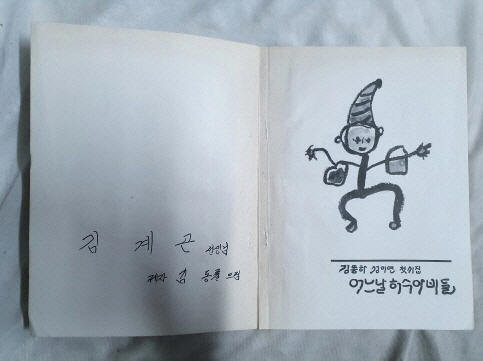 김 계 곤 선생님
제자 김 동 드림
김동하 첫시집
어느날 허수아비들